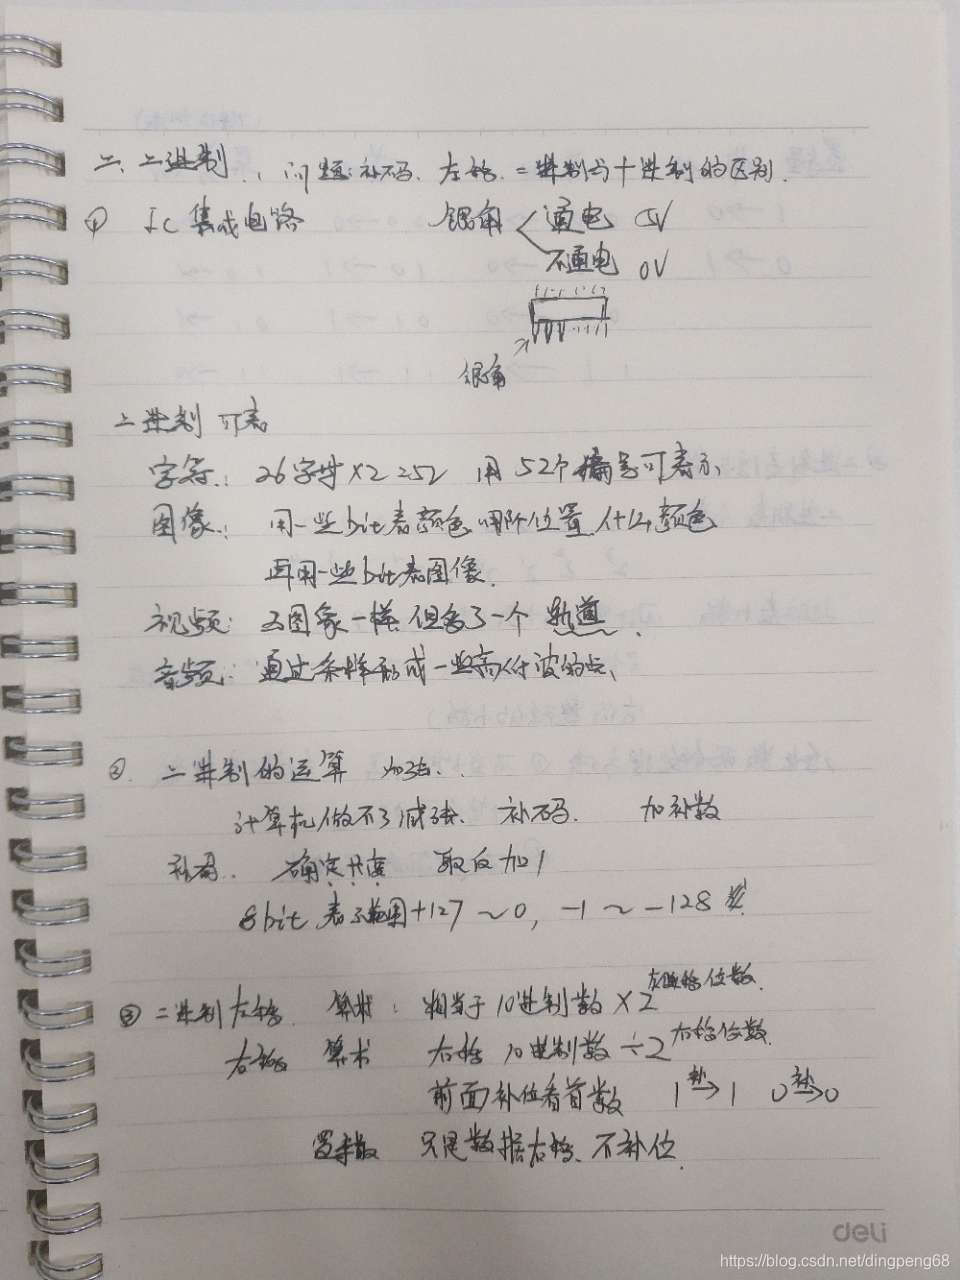 二、二进制. 问题:补码、左移. 二进制与十进制的区别.
① IC 集成电路 银角 通电 5V
不通电 0V
银角
二进制 可表
字符: 26字母×2=52 用 52个编号可表示
图像: 用一些bit表颜色 哪个位置 什么颜色
再用一些bit表图像.
视频: 与图象一样 但多了一个 轨道.
音频: 通过采样形成一些高低波的点.
②. 二进制的运算 加法.
计算机做不了减法. 补码. 加补数
补码. 确定长度 取反加1
8bit 表示范围 +127 ~ 0, -1 ~ -128
③ 二进制左移 算术: 相当于10进制数×2 左移位数.
右移 算术 右移 10进制数÷2 右移位数.
前面补位看首数 1 补→ 1 0 补→ 0
逻辑 只是数据右移、不补位.
deli
https://blog.csdn.net/dingpeng68